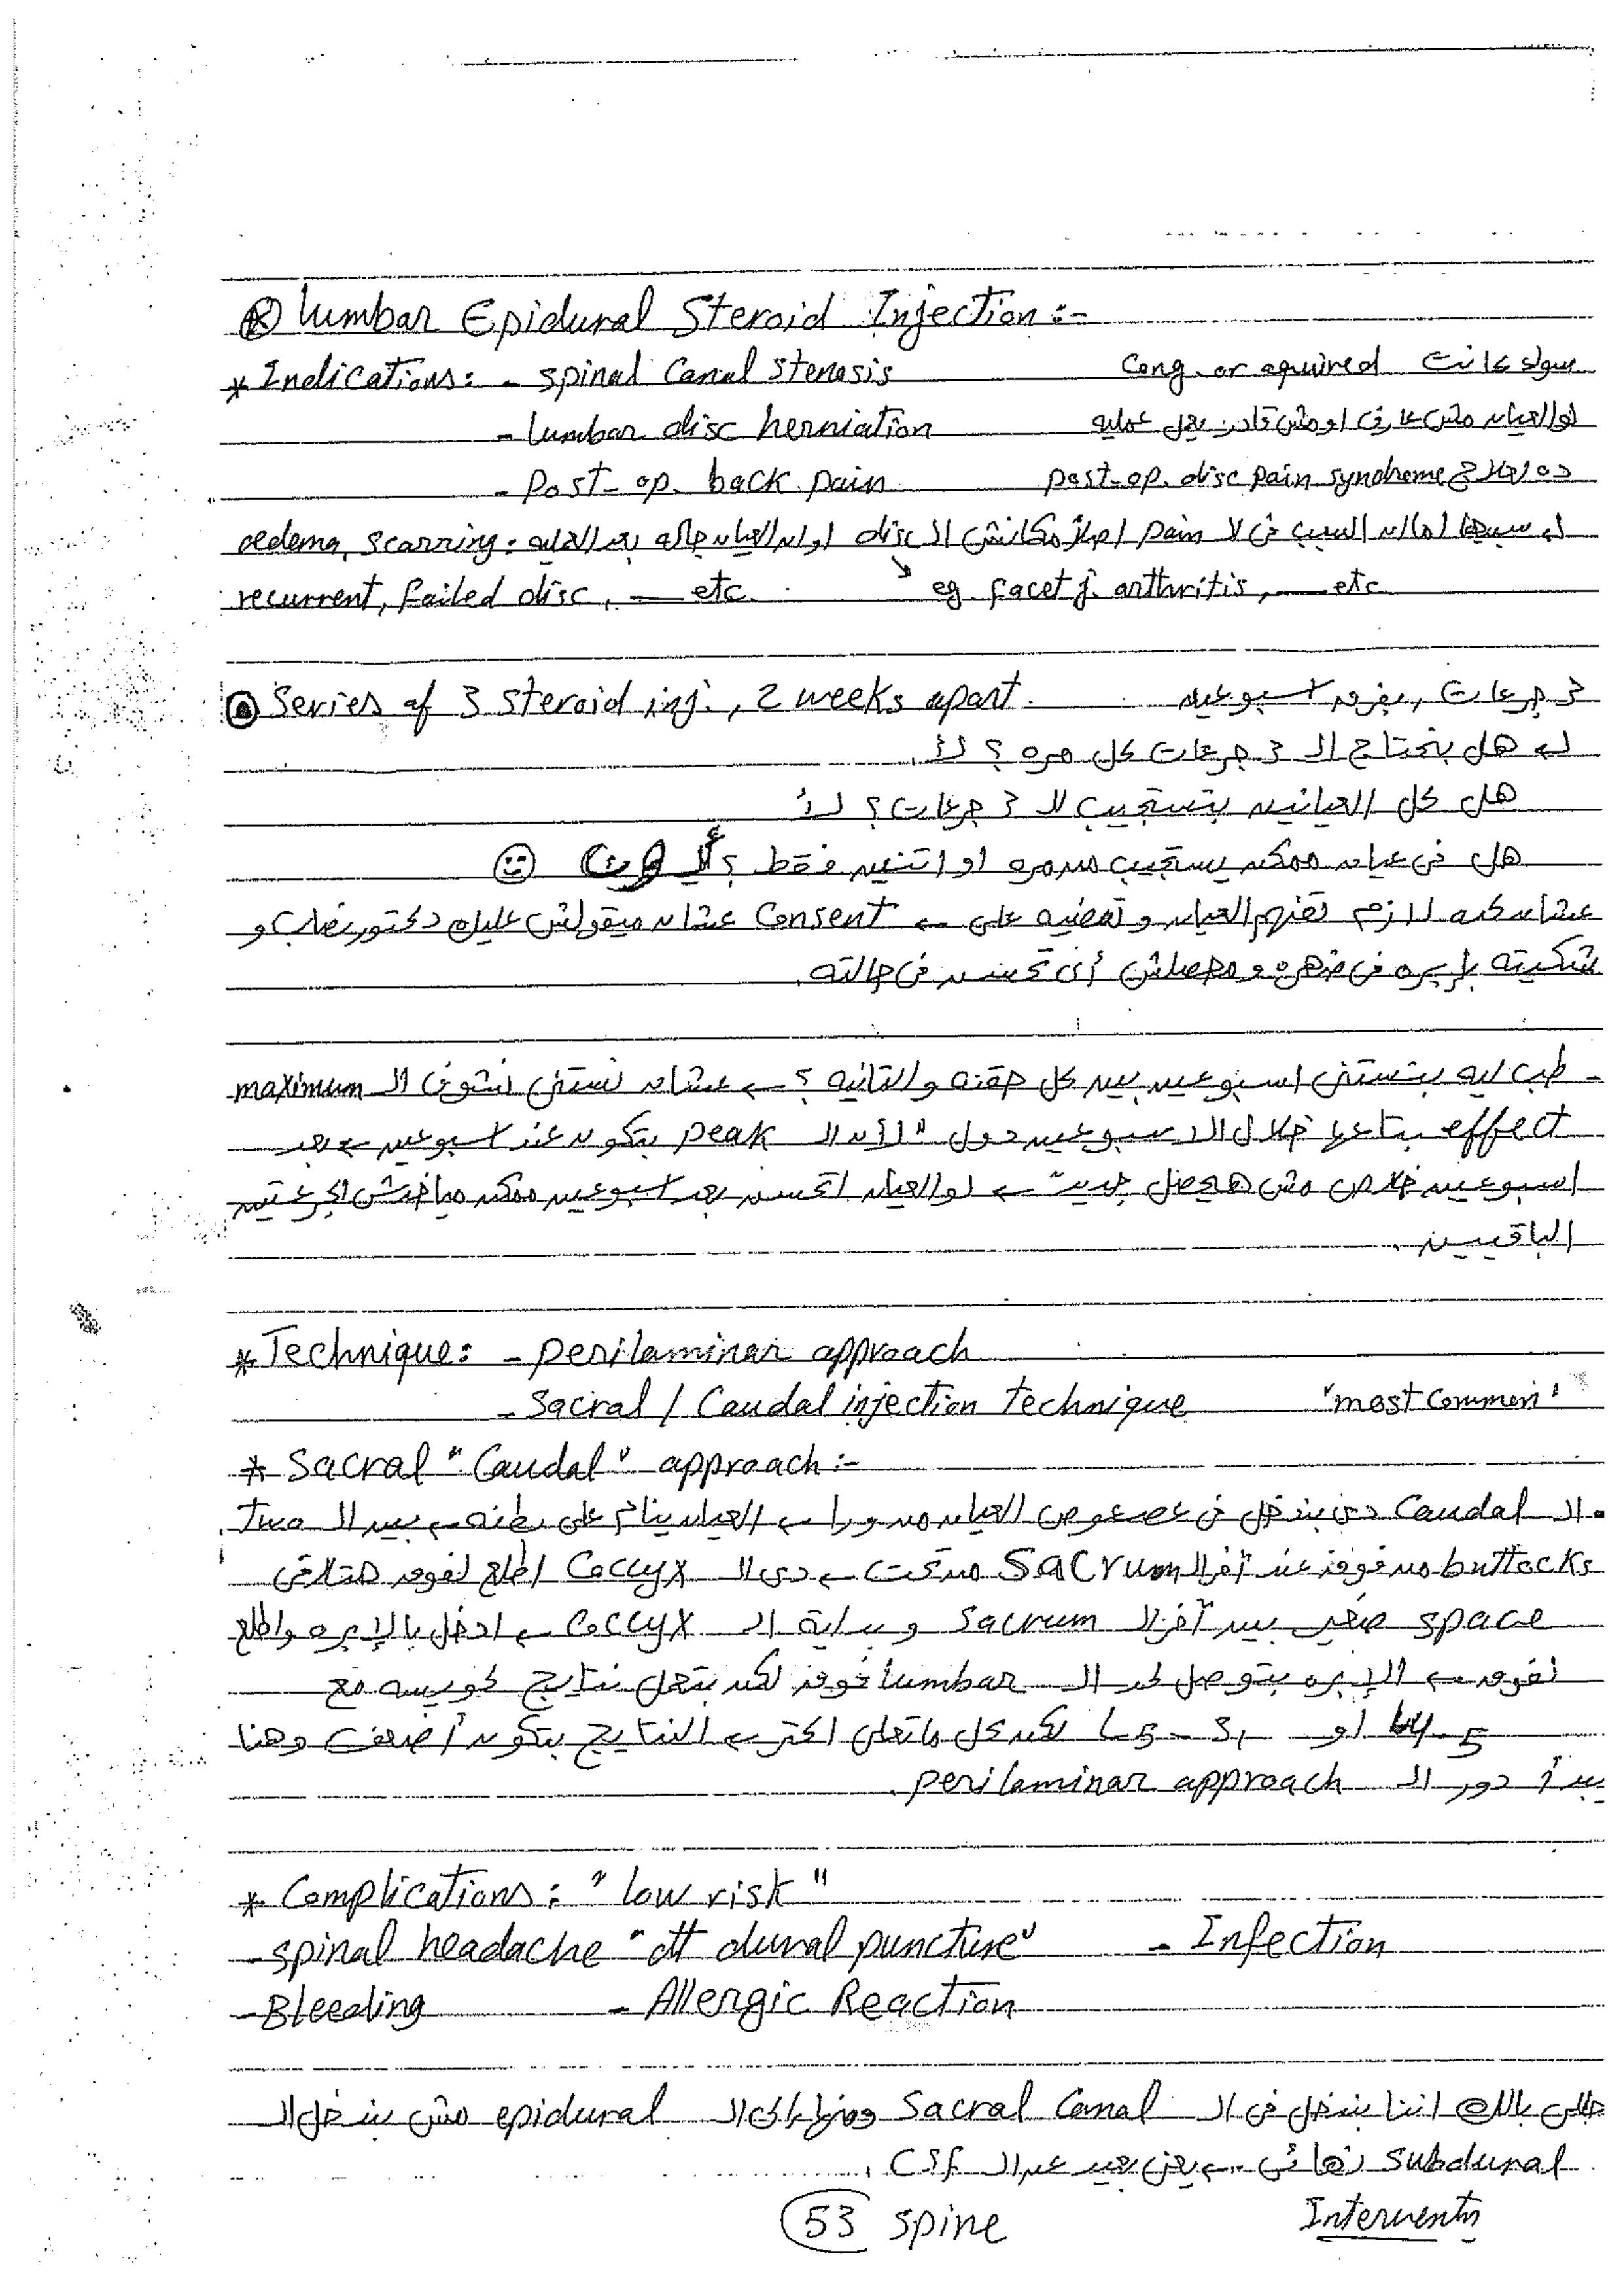 ® Lumbar Epidural Steroid Injection :-
* Indications: - spinal Canal stenosis Cong. or aquired سواء كانت
- lumbar disc herniation لو العيان مش عارف او مش قادر يعمل عمليه
- Post-op. back pain post-op. disc pain syndrome ده بيعالج
سببها اما ان السبب فى الـ pain اصلاً مكانش الـ disc او ان العيان جاله بعد العمليه: oedema, scarring
recurrent, failed disc, — etc. eg. facet j. arthritis, — etc.
Series of 3 steroid inj., 2 weeks apart. 3 جرعات, بفرق اسبوعين
هل بنحتاج الـ 3 جرعات كل مره ؟ لأ.
هل كل العيانين بتستجيب للـ 3 جرعات؟ لأ
هل فى عيان ممكن يستجيب من مره او اتنين فقط ؟
عشان كده لازم تفهم العيان و تمضيه على ← Consent عشان ميقولش عليك دكتور نصاب و
شكيته بإبره فى ضهره و محصلش أى تحسن فى حالته.
- طب ليه بنستنى اسبوعين بين كل حقنه والتانيه ؟ ← عشان نستنى نشوف الـ maximum
effect بتاعها خلال الاسبوعين دول "لأن الـ peak بتكون عند اسبوعين ← بعد
اسبوعين خلاص مش هيحصل جديد" ← لو العيان اتحسن بعد اسبوعين ممكن مياخدش الجرعتين
الباقيين.
* Technique: - perilaminar approach
- Sacral / Caudal injection technique "most common"
* Sacral "Caudal" approach :-
• الـ Caudal دى بندخل فى عصعوص العيان من ورا ← العيان بينام على بطنه ← بين الـ Two
buttocks من فوق عند آخر الـ SaCrum من تحت ← دى الـ Coccyx اطلع لفوق هتلاقى
space صغير بين آخر الـ Sacrum و بداية الـ Coccyx ← ادخل بالإبره واطلع
لفوق ← الإبره بتوصل لحد الـ lumbar فوق لكن بتعمل نتايج كويسه مع
L4-5 او L5-S1 لكن كل ماتعلى اكتر ← النتايج بتكون أضعف وهنا
يبدأ دور الـ perilaminar approach.
* Complications: "low risk"
- spinal headache "dt dural puncture" - Infection
- Bleeding - Allergic Reaction
خلى بالك اننا بندخل فى الـ Sacral Canal ومنها الى الـ epidural مش بندخل الـ
subdural نهائى ← يعنى بعيد عن الـ CSF.
53 spine Interventn